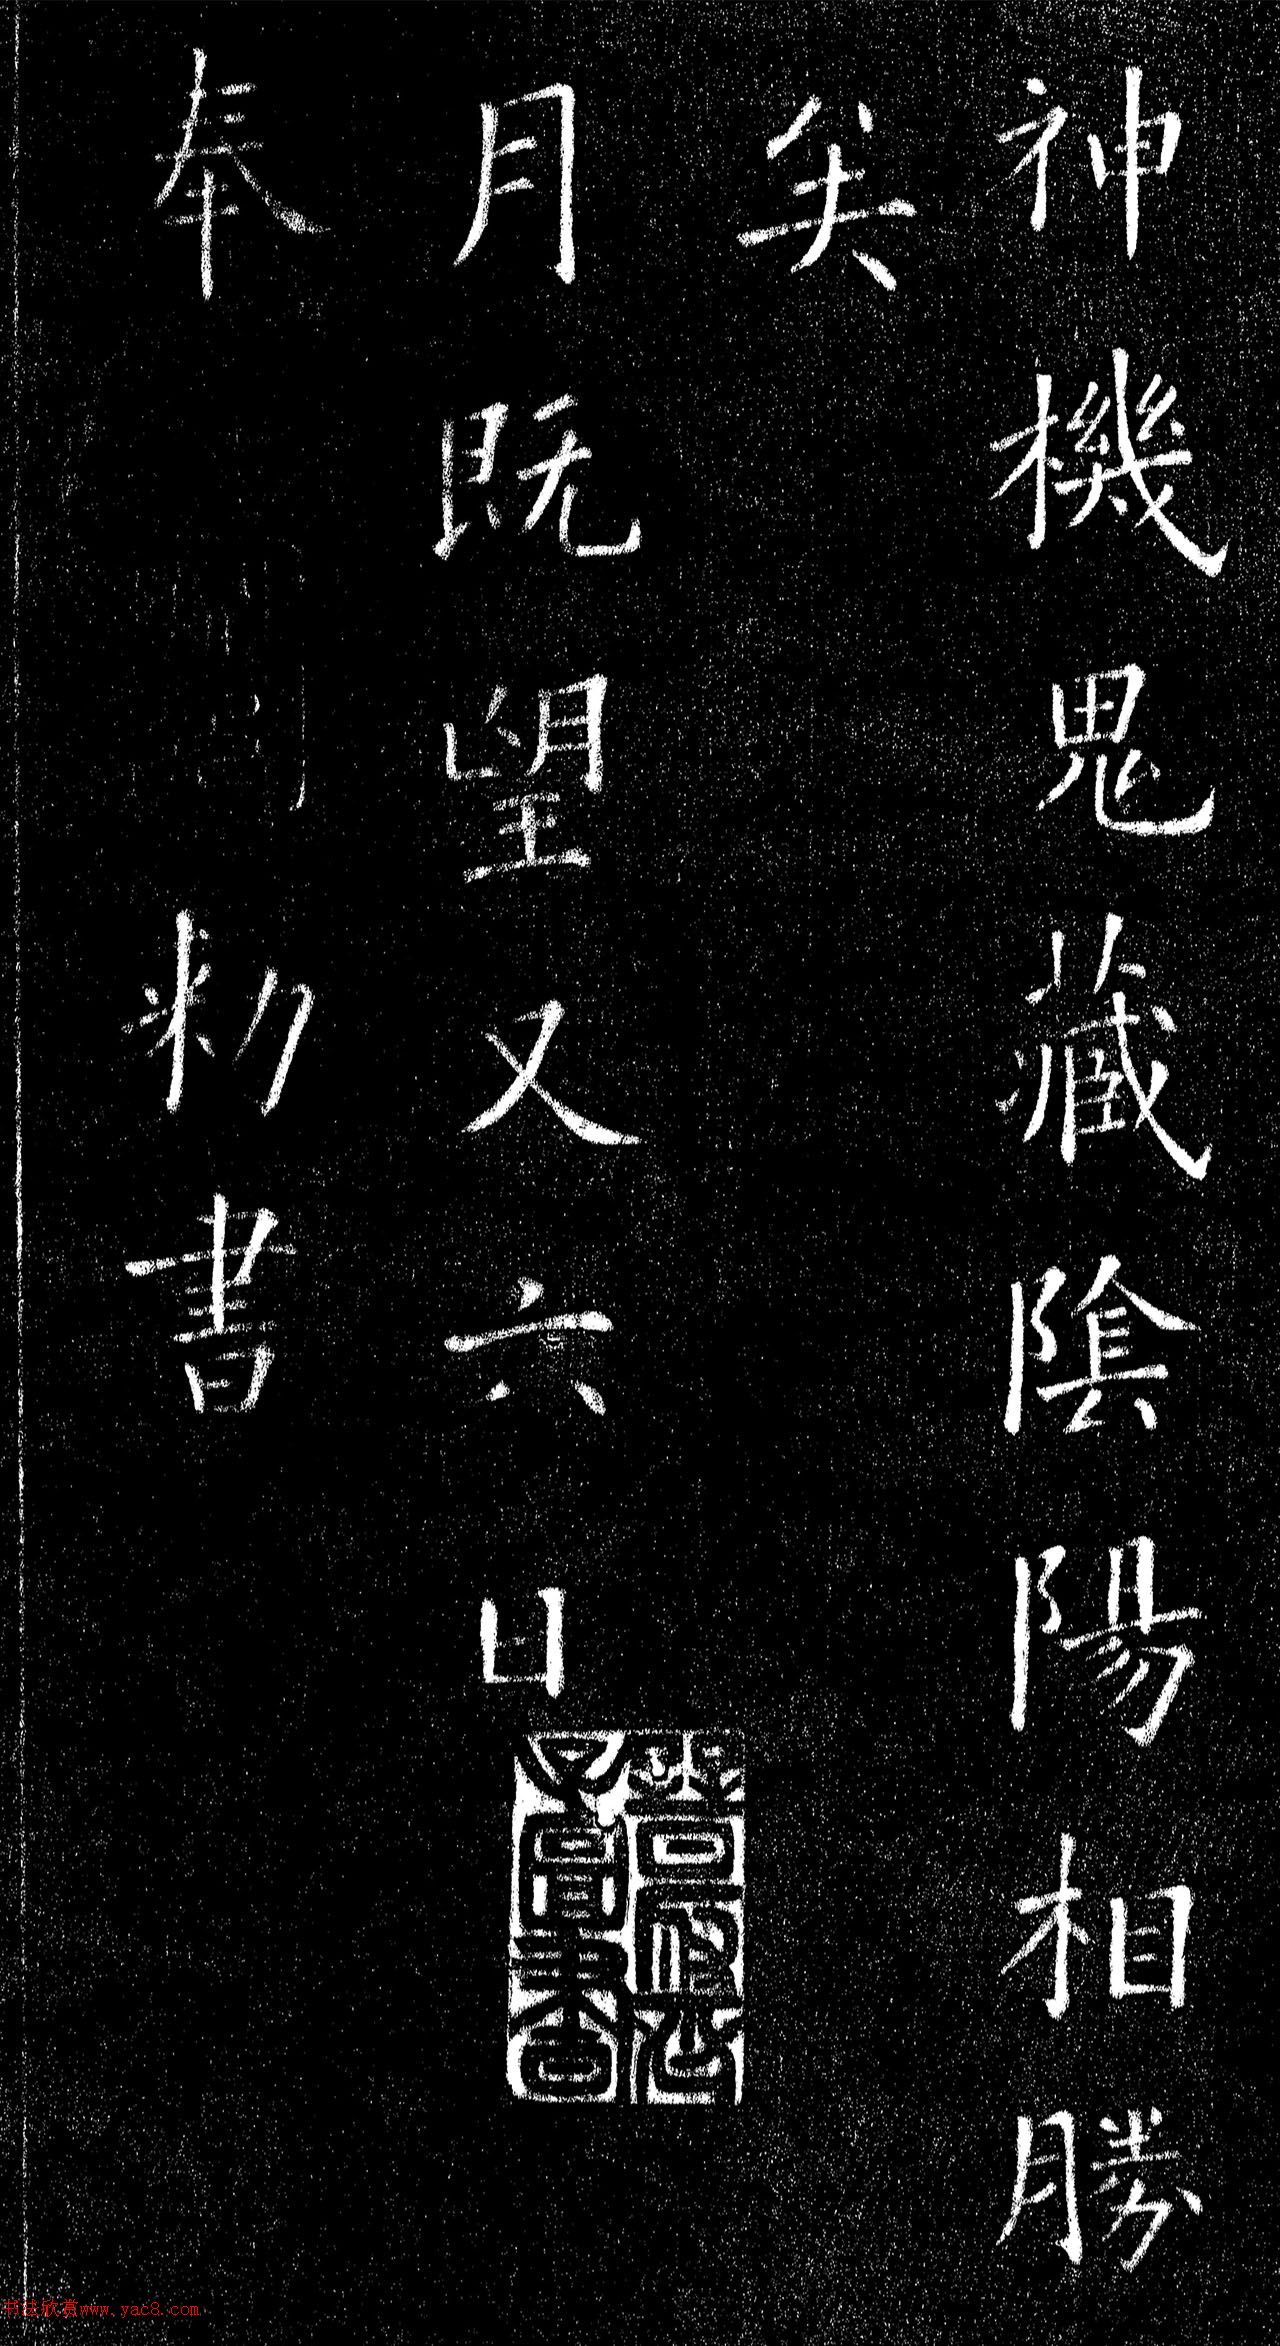 神機鬼藏陰陽相勝
矣
月既望又六日
奉
勑書
书法欣赏www.yac8.com